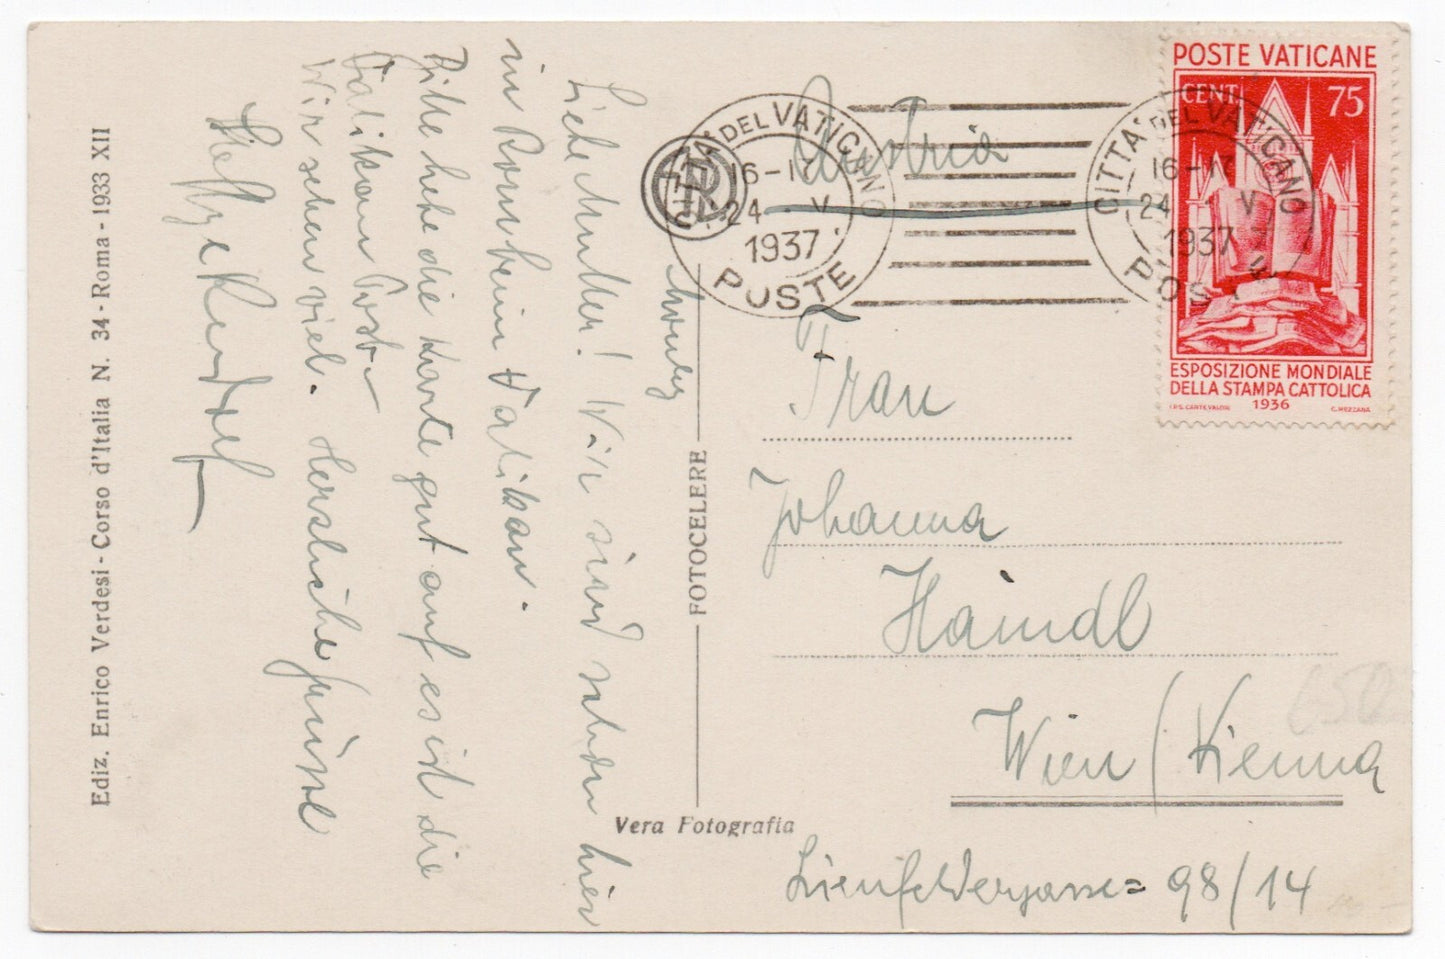 Montag
Liebe Mutter! Wir sind schon hier
in Rom beim Vatikan.
Bitte hebe die Karte gut auf es ist die
Vatikan Post
Wir sehen viel. Herzliche Grüsse
Ediz. Enrico Verdesi - Corso d'Italia N. 34 - Roma - 1933 XII
FOTOCELERE
Vera Fotografia
CITTA' DEL VATICANO
16-17
24 V
1937
POSTE
CITTA' DEL VATICANO
16-17
24 V
1937
POSTE
POSTE VATICANE
CENT. 75
ESPOSIZIONE MONDIALE
DELLA STAMPA CATTOLICA
1936
I.P.S. CARTE VALORI C. MEZZANA
Austria
Frau
Johanna
Haindl
Wien / Vienna
Lienfeldergasse 98/14
650